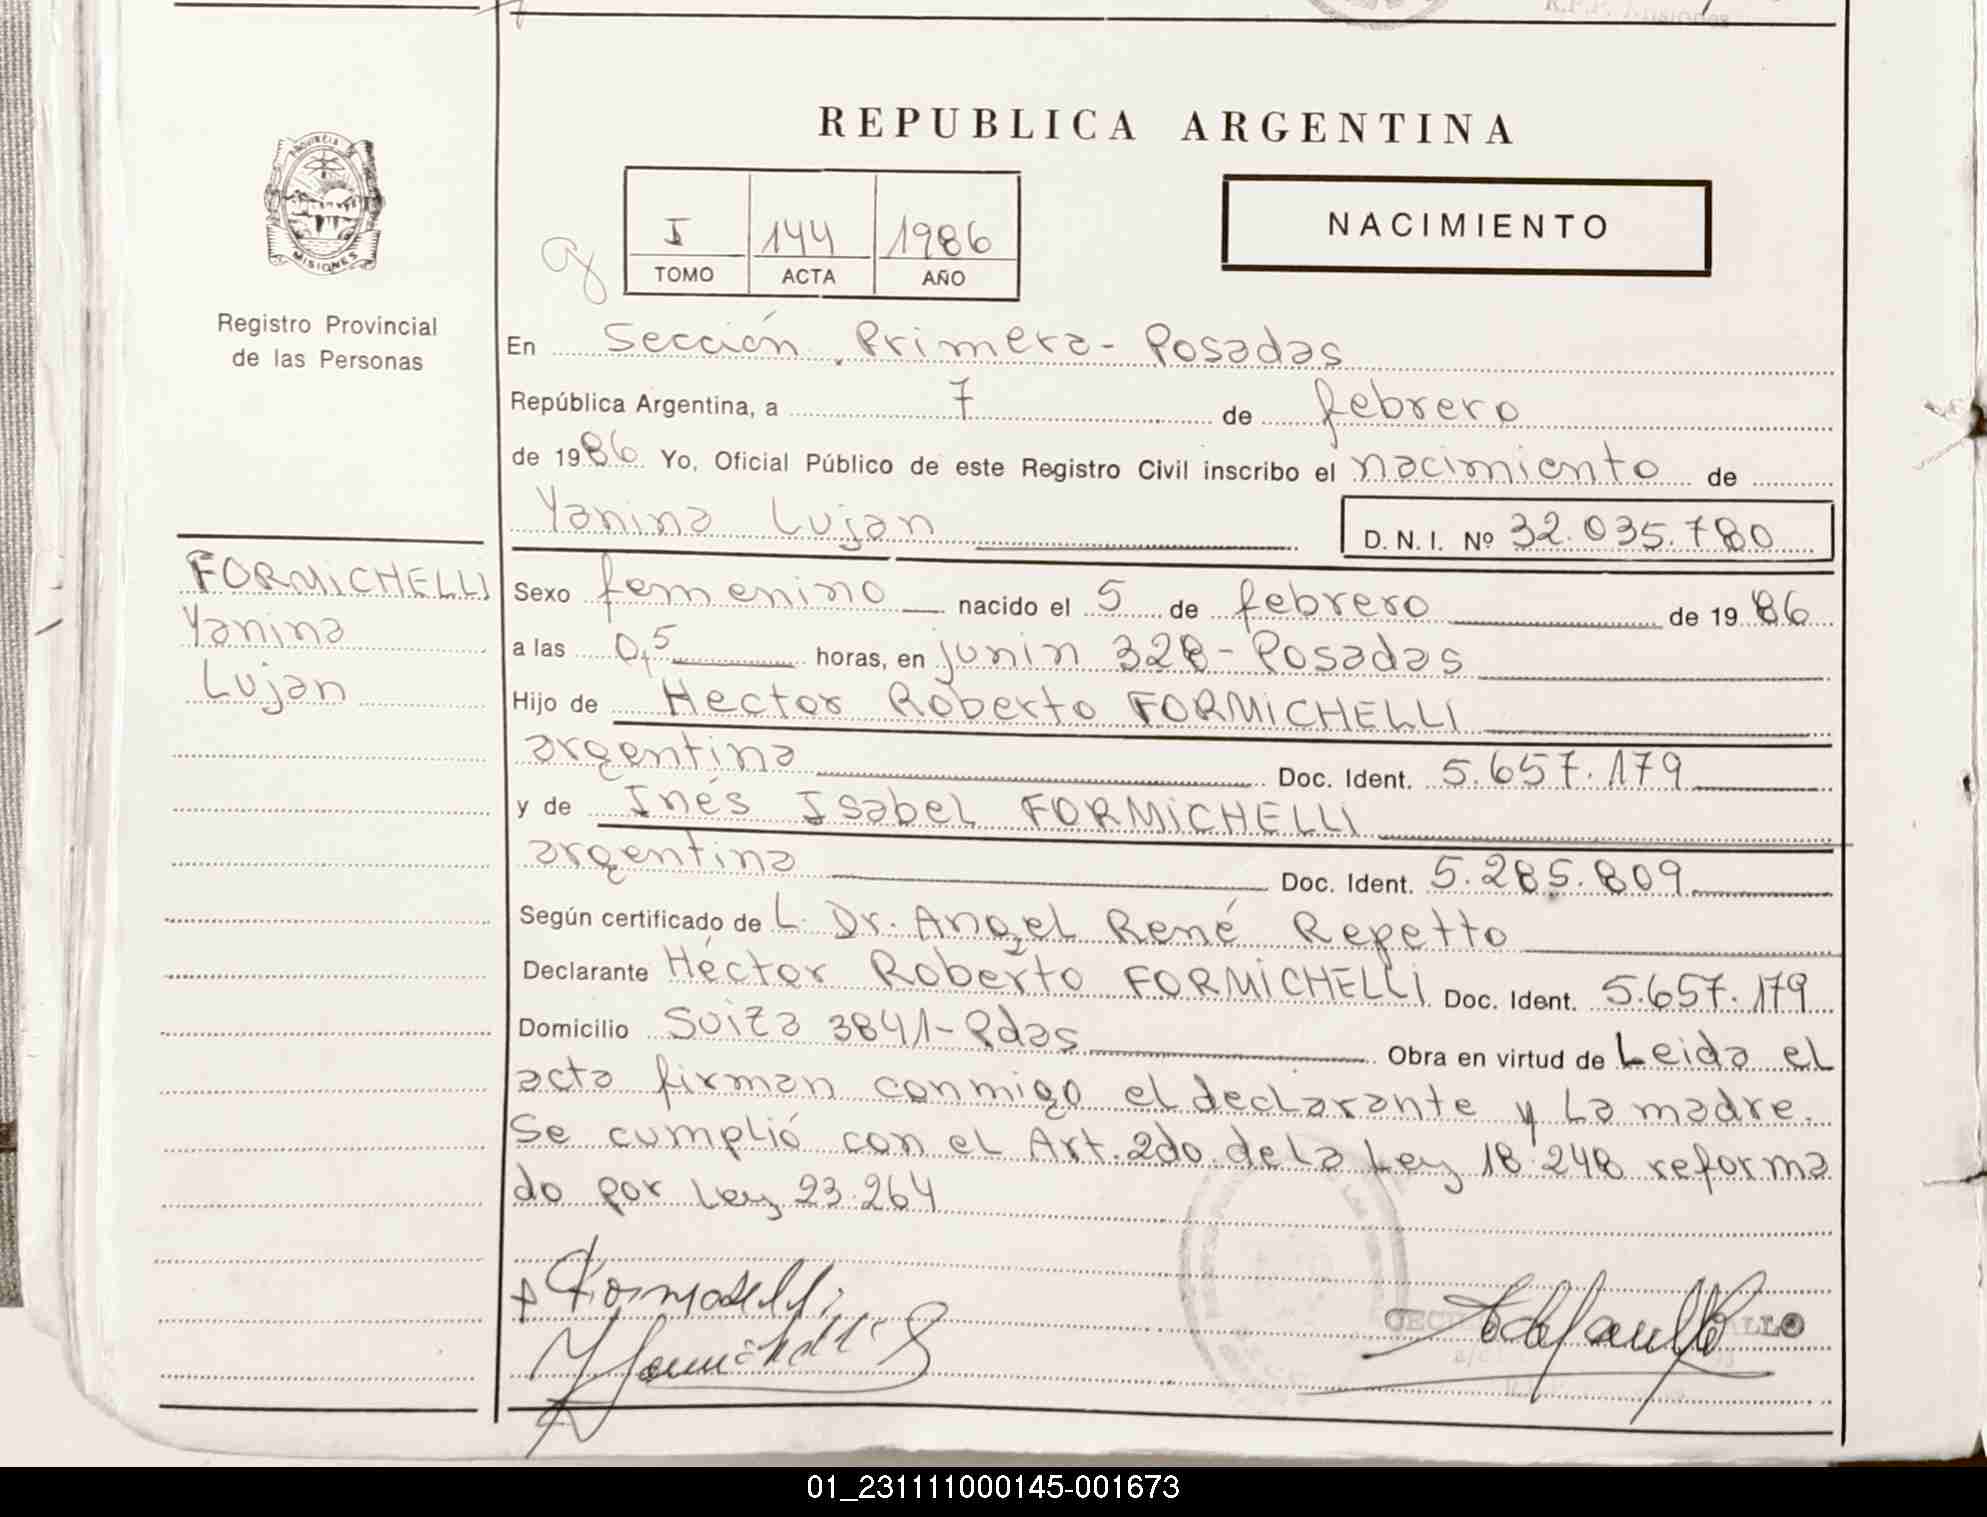 REPUBLICA ARGENTINA
PROVINCIA DE
MISIONES
Registro Provincial
de las Personas
I 144 1986
TOMO ACTA AÑO
NACIMIENTO
En Sección Primera - Posadas
República Argentina, a 7 de febrero
de 1986 Yo, Oficial Público de este Registro Civil inscribo el nacimiento de
Yanina Lujan
D. N. I. Nº 32.035.780
FORMICHELLI
Yanina
Lujan
Sexo femenino nacido el 5 de febrero de 1986
a las 0,5 horas, en junin 328 - Posadas
Hijo de Hector Roberto FORMICHELLI
argentina Doc. Ident. 5.657.179
y de Inés Isabel FORMICHELLI
argentina Doc. Ident. 5.285.809
Según certificado de L. Dr. Angel René Repetto
Declarante Héctor Roberto FORMICHELLI Doc. Ident. 5.657.179
Domicilio Suiza 3841 - Pdas Obra en virtud de Leida el
acta firman conmigo el declarante y La madre.
Se cumplió con el Art. 2do de la Ley 18.248 reforma
do por Ley 23.264
01_231111000145-001673